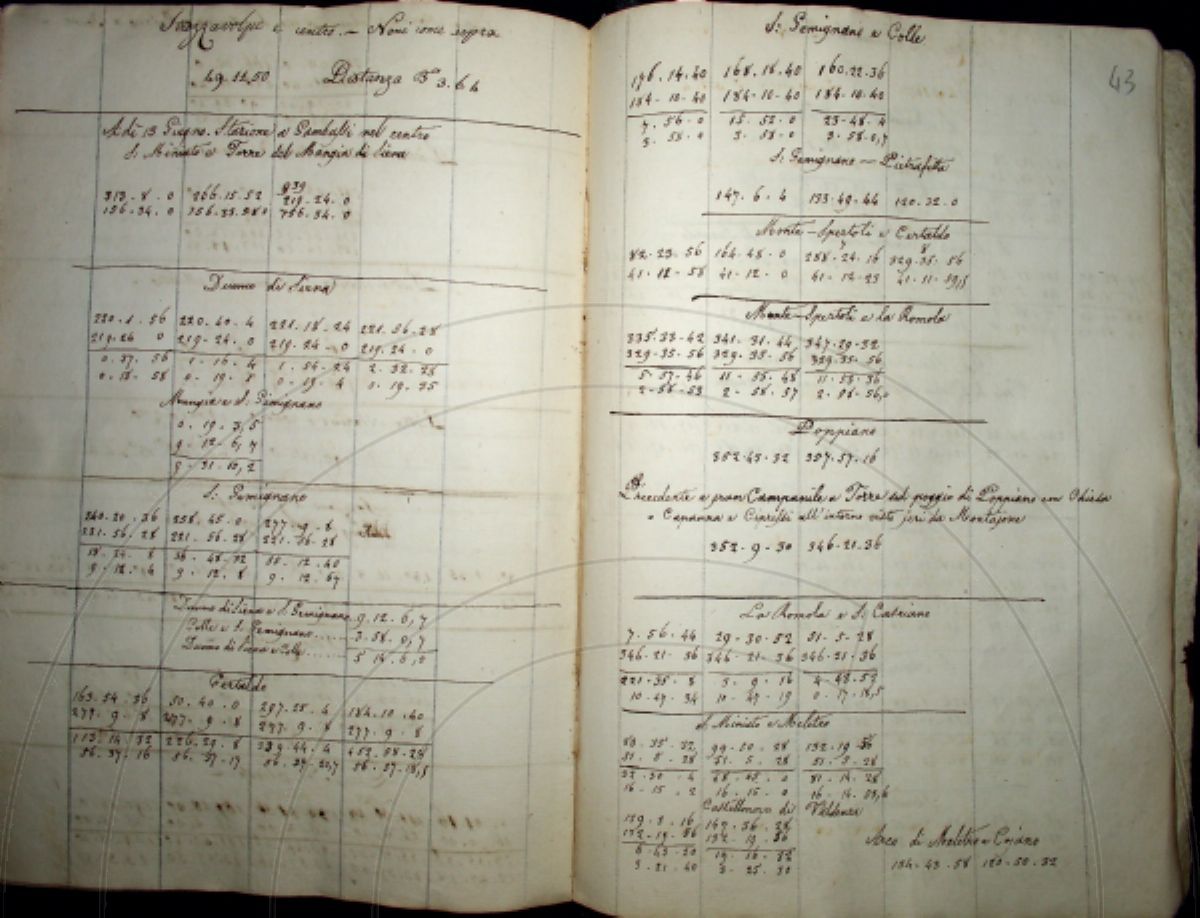 e centro. — Nomi come sopra
49.12.50 Distanza 3.64
A di 13 Giugno. Stazione a Gambassi nel centro
S. Miniato e Torre del Mangia di Siena
839
313.8.0 266.15.52 219.24.0
156.34.0 156.34.0
Duomo di Siena
220.1.56 220.40.4 221.18.24 221.56.28
219.24 0 219.24.0 219.24.0 219.24.0
0.37.56 1.16.4 1.54.24 2.32.28
0.18.58 0.19.8 0.19.4 0.19.
Mangia e S. Gimignano
0.19.3,5
9.12.6,7
9.31.10,2
S. Gemignano
240.20.36 258.45.0 277.9.8
221.56.28 221.56.28 221.56.28
18.24.8 36.48.32 55.12.40
9.12.4 9.12.8 9.12.6,7
Duomo di Siena e S. Gemignano 9.12.6,7
Colle e S. Gemignano ...... 3.58.0,7
Duomo di Siena e Colle ......... 5.14.6,0
Certaldo
163.54.36 50.40.0 297.25.4 184.10.40
277.9.8 277.9.8 277.9.8 277.9.8
113.14.32 226.29.8 339.44.4 452.58.28
56.37.16 56.37.17 56.37.20,7 56.37.18,5
43
S. Gemignano e Colle
176.14.40 168.18.40 160.22.36
184.10.40 184.10.40 184.10.40
7.56.0 15.52.0 23.48.4
3.58.0 3.58.0 3.58.0,7
S. Gemignano — Pietrafitta
147.6.4 133.49.44 120.32.0
Monte-Spertoli e Certaldo
82.23.56 164.48.0 329.35.56
41.12.58 41.12.0 41.12.23 41.11.59,5
Monte-Spertoli e la Romola
335.33.42 341.31.44 347.29.32
329.35.56 329.35.56 329.35.56
5.57.46 11.55.48
2.58.53 2.58.57 2.58.56,0
Poppiano
352.43.32 357.57.16
Precedente a gran Campanile a Torre del poggio di Poppiano con Chiesa
Capanna e Cipressi all'intorno visto jeri da Montajone
352.9.30 346.21.36
La Romola e S. Casciano
7.56.44 29.30.52 51.5.28
346.21.36 346.21.36 346.21.36
221.35.8 3.9.16
10.47.34 10.47.19 0.17.18,5
S. Miniato e Meleto
83.35.32 99.50.28 132.19.56
51.5.28 51.5.28 51.5.28
32.30.4 48.45.0 81.14.28
16.15.2 16.15.0 16.14.53,6
Castelnovo di
139.3.16 149.36.28
132.19.56 132.19.56
6.43.20 17.16.32
3.21.40 3.25.30
Arco di Meleto e Cojano
134.43.58 120.50.32